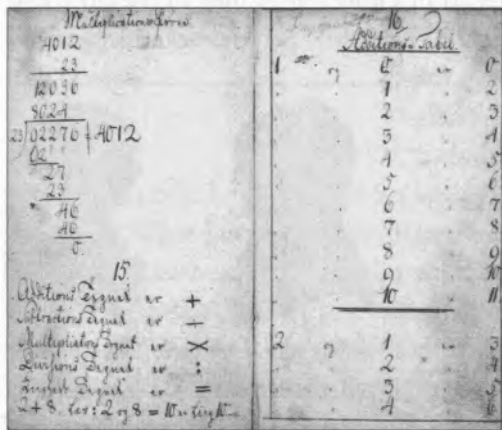 Multiplications
4012
23
12036
8024
23)02276 4012
02
27
23
46
46
0
15
Additions Tegnet er +
Subtractions Tegnet er ÷
Multiplications Tegnet er ×
Divisions Tegnet er :
Tegnet er =
2 + 8. : 2 og 8 = 10 er 10
16
Additions Tabel
1 og 0 er 0
1 2
2 3
3 4
4 5
5 6
6 7
7 8
8 9
9 10
10 11
2 og 1 er 3
2 4
3 5
4 6